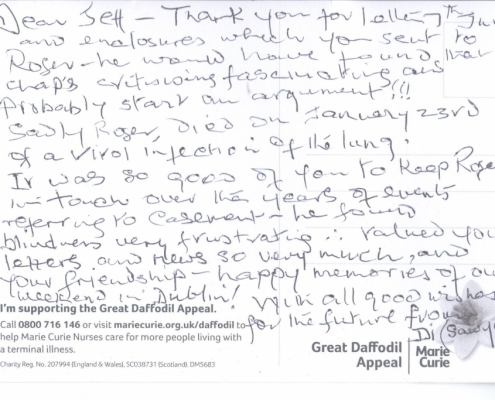 Dear Jeff - Thank you for letter
and enclosures which you sent to
Roger - he would have found that
chap's critising fascinating and
Probably start an argument!!!
Sadly Roger, died on January 23rd
of a virol infection of the lung.
It was so good of you to keep Roger
in touch over the years of events
referring to Casement - he found
blindness very frustrating ∴ valued your
letters and news so very much, and
your friendship - happy memories of our
weekend in Dublin! With all good wishes
for the future from
Di (Sawyer
I'm supporting the Great Daffodil Appeal.
Call 0800 716 146 or visit mariecurie.org.uk/daffodil to
help Marie Curie Nurses care for more people living with
a terminal illness.
Charity Reg. No. 207994 (England & Wales), SC038731 (Scotland). DM5683
Great Daffodil
Appeal
Marie
Curie